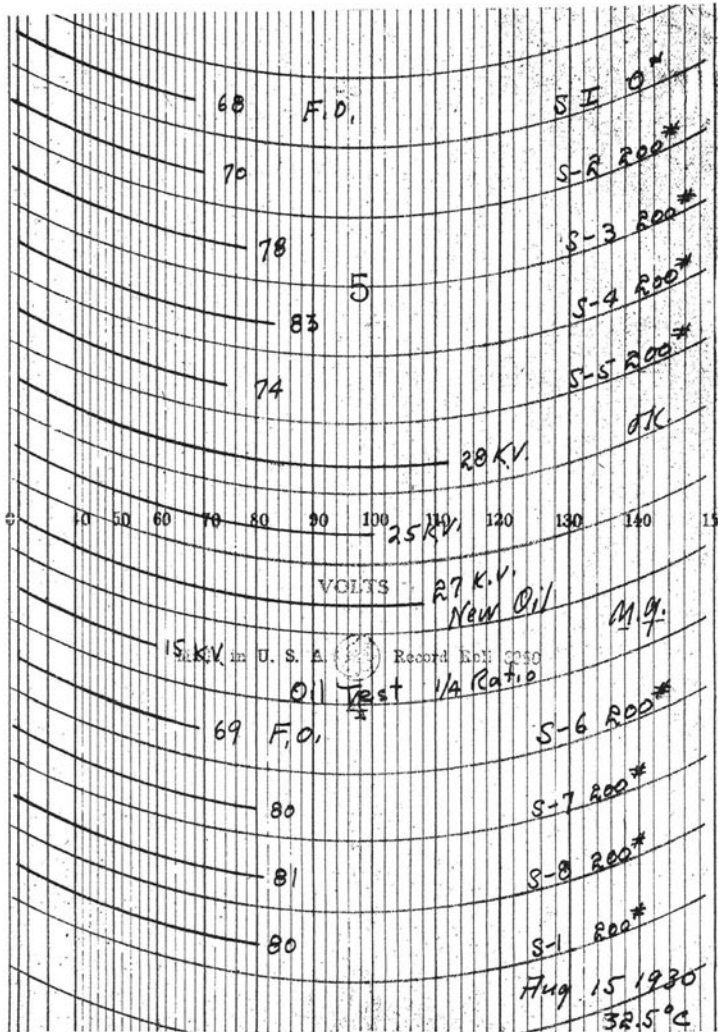 68 F.O. S I 0#
70 S-2 200#
78 S-3 200#
5
83 S-4 200#
74 S-5 200#
28 K.V. OK.
0 40 50 60 70 80 90 100 110 120 130 140 15
25 K.V.
VOLTS 27 K.V.
New Oil M.G.
15 K.V. in U. S. A. Record Roll
Oil Test 1/4 Ratio
69 F.O. S-6 200#
80 S-7 200#
81 S-8 200#
80 S-1 200#
Aug 15 1930
32.5°C